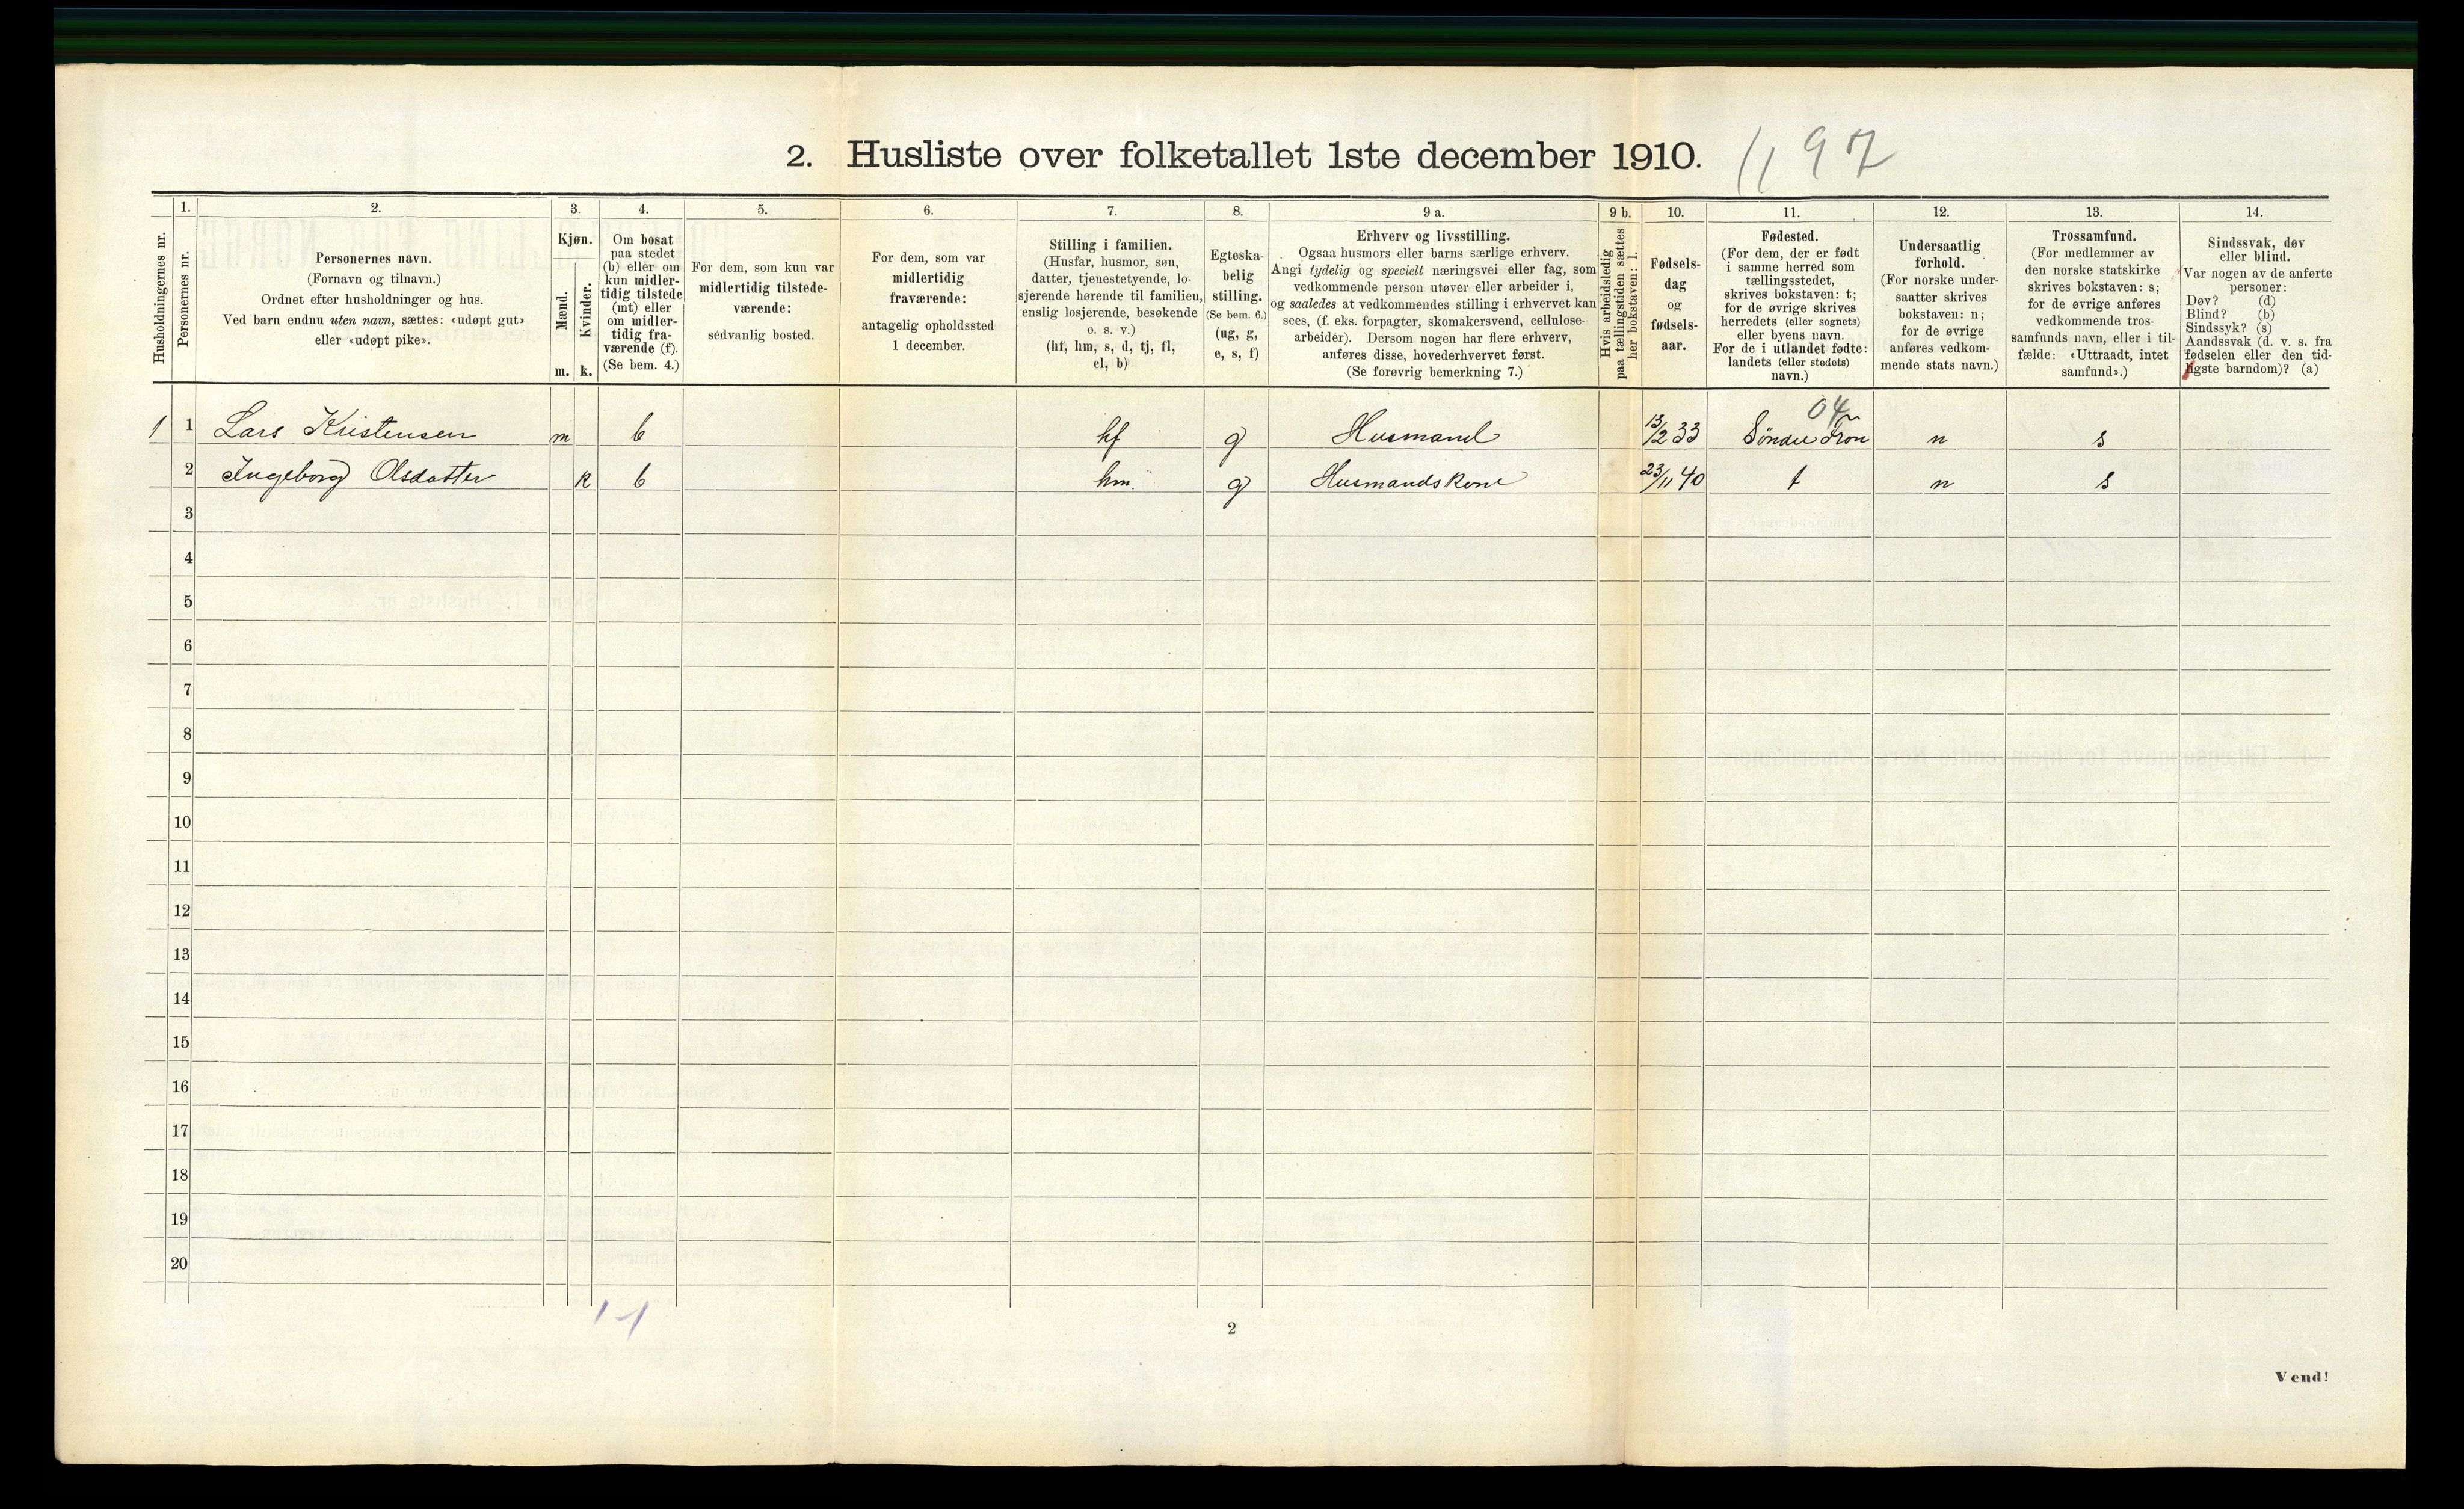 2. Husliste over folketallet 1ste december 1910. 197
1. 2. 3. 4. 5. 6. 7. 8. 9 a. 9 b. 10. 11. 12. 13. 14.
Husholdningernes nr.
Personernes nr.
Personernes navn.
(Fornavn og tilnavn.)
Ordnet efter husholdninger og hus.
Ved barn endnu uten navn, sættes: «udøpt gut»
eller «udøpt pike».
Kjøn.
Mænd.
Kvinder.
m. k.
Om bosat
paa stedet
(b) eller om
kun midler-
tidig tilstede
(mt) eller
om midler-
tidig fra-
værende (f).
(Se bem. 4.)
For dem, som kun var
midlertidig tilstede-
værende:
sedvanlig bosted.
For dem, som var
midlertidig
fraværende:
antagelig opholdssted
1 december.
Stilling i familien.
(Husfar, husmor, søn,
datter, tjenestetyende, lo-
sjerende hørende til familien,
enslig losjerende, besøkende
o. s. v.)
(hf, hm, s, d, tj, fl,
el, b)
Egteska-
belig
stilling.
(Se bem. 6.)
(ug, g,
e, s, f)
Erhverv og livsstilling.
Ogsaa husmors eller barns særlige erhverv.
Angi tydelig og specielt næringsvei eller fag, som
vedkommende person utøver eller arbeider i,
og saaledes at vedkommendes stilling i erhvervet kan
sees, (f. eks. forpagter, skomakersvend, cellulose-
arbeider). Dersom nogen har flere erhverv,
anføres disse, hovederhvervet først.
(Se forøvrig bemerkning 7.)
Hvis arbeidsledig
paa tællingstiden sættes
her bokstaven: l.
Fødsels-
dag
og
fødsels-
aar.
Fødested.
(For dem, der er født
i samme herred som
tællingsstedet,
skrives bokstaven: t;
for de øvrige skrives
herredets (eller sognets)
eller byens navn.
For de i utlandet fødte:
landets (eller stedets)
navn.)
Undersaatlig
forhold.
(For norske under-
saatter skrives
bokstaven: n;
for de øvrige
anføres vedkom-
mende stats navn.)
Trossamfund.
(For medlemmer av
den norske statskirke
skrives bokstaven: s;
for de øvrige anføres
vedkommende tros-
samfunds navn, eller i til-
fælde: «Uttraadt, intet
samfund».)
Sindssvak, døv
eller blind.
Var nogen av de anførte
personer:
Døv? (d)
Blind? (b)
Sindssyk? (s)
Aandssvak (d. v. s. fra
fødselen eller den tid-
ligste barndom)? (a)
04
1 1 Lars Kristensen m b hf g Husmand 13/2 33 Søndre Fron n s
2 Ingeborg Olsdatter k b hm. g Husmandskone 23/11 40 t n s
3
4
5
6
7
8
9
10
11
12
13
14
15
16
17
18
19
20
1-1
2
Vend!